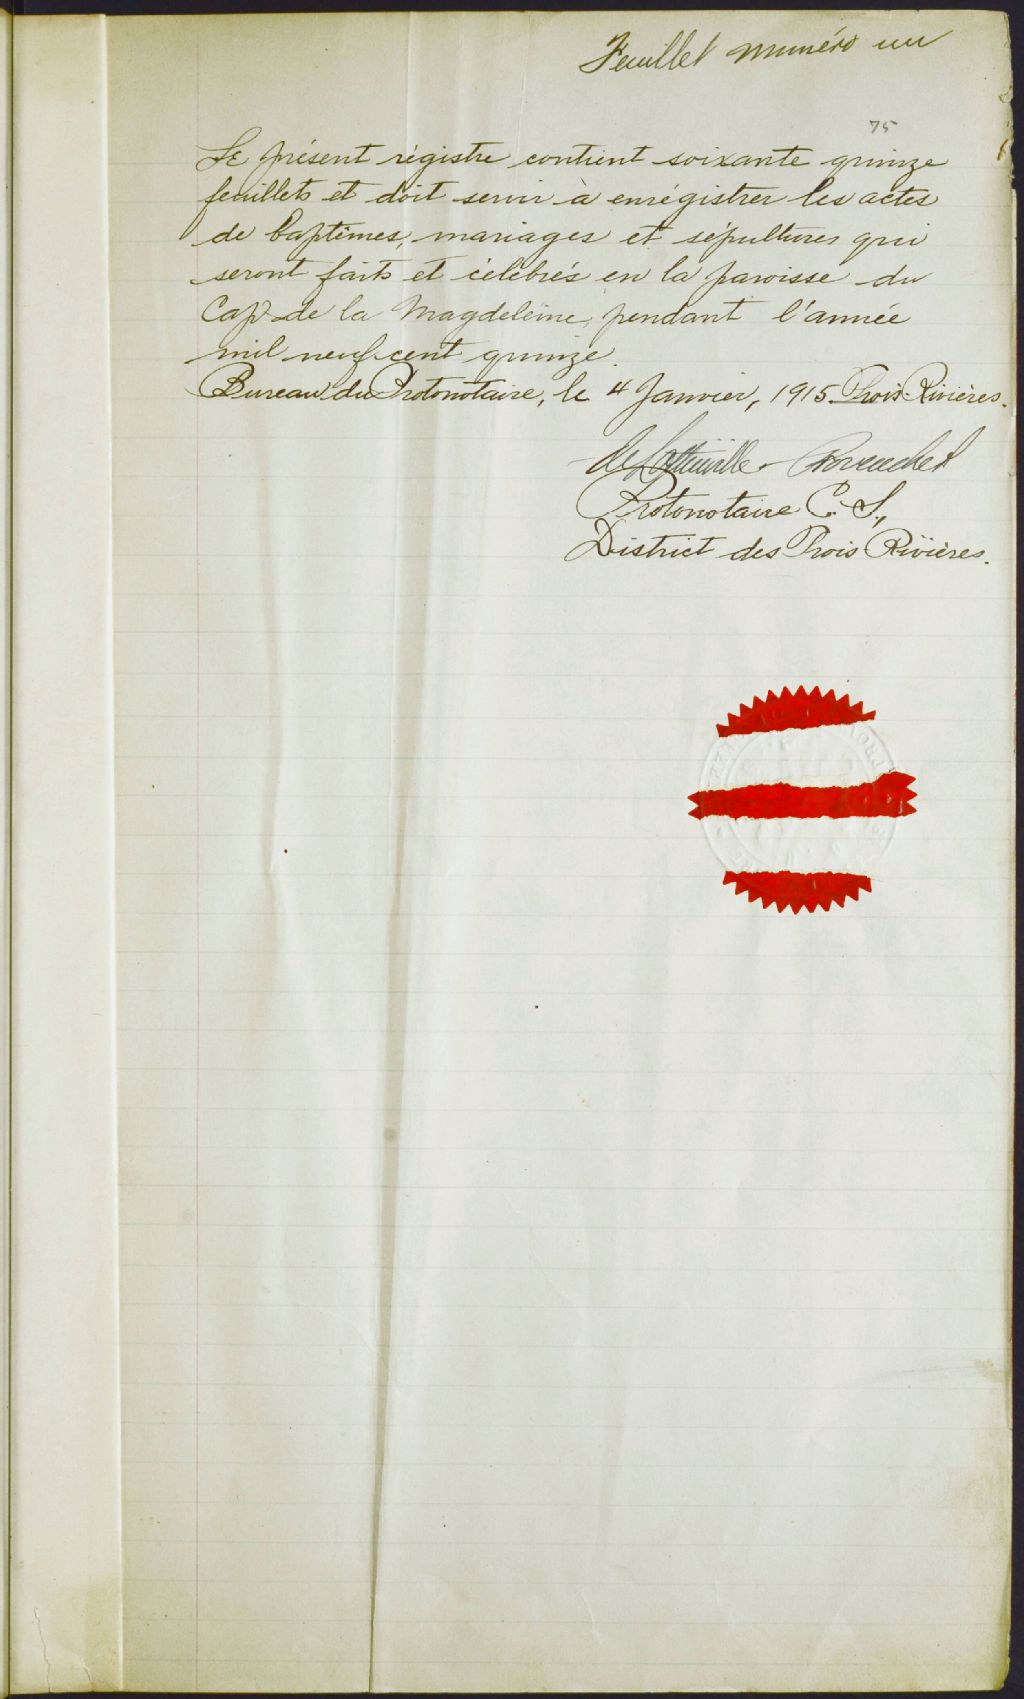 Feuillet numéro un
75
Le présent régistre contient soixante quinze
feuillets et doit servir à enrégistrer les actes
de baptêmes, mariages et sépultures qui
seront faits et célébrés en la paroisse du
Cap de la Magdeleine, pendant l'année
mil neuf cent quinze.
Bureau du Protonotaire, le 4 Janvier, 1915. Trois-Rivières.
Protonotaire C. S.,
District des Trois Rivières.